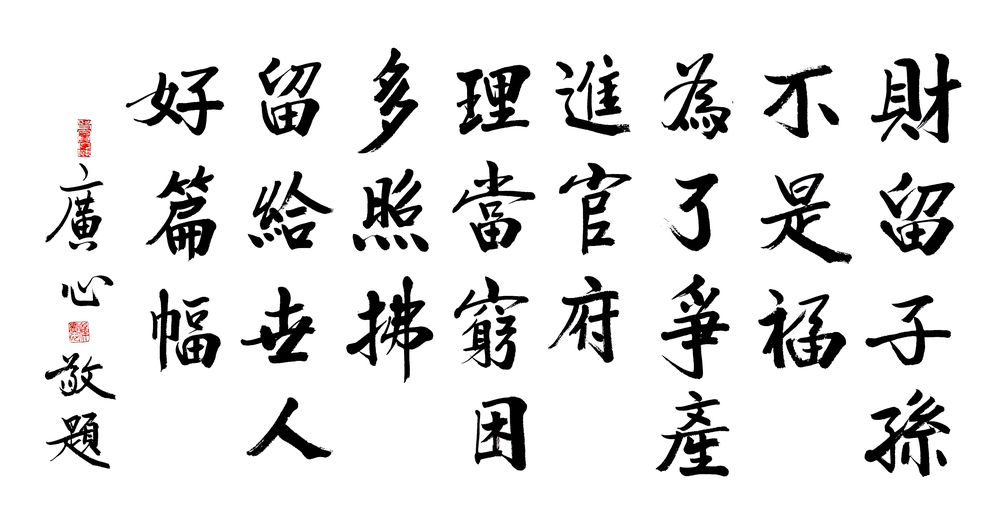 財留子孫
不是福
為了爭產
進官府
理當窮困
多照拂
留給世人
好篇幅
廣心敬題